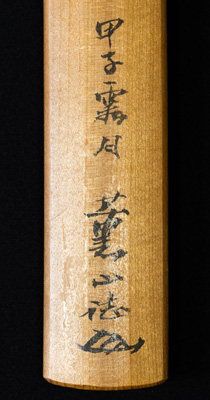 甲子霜月 薫山誌